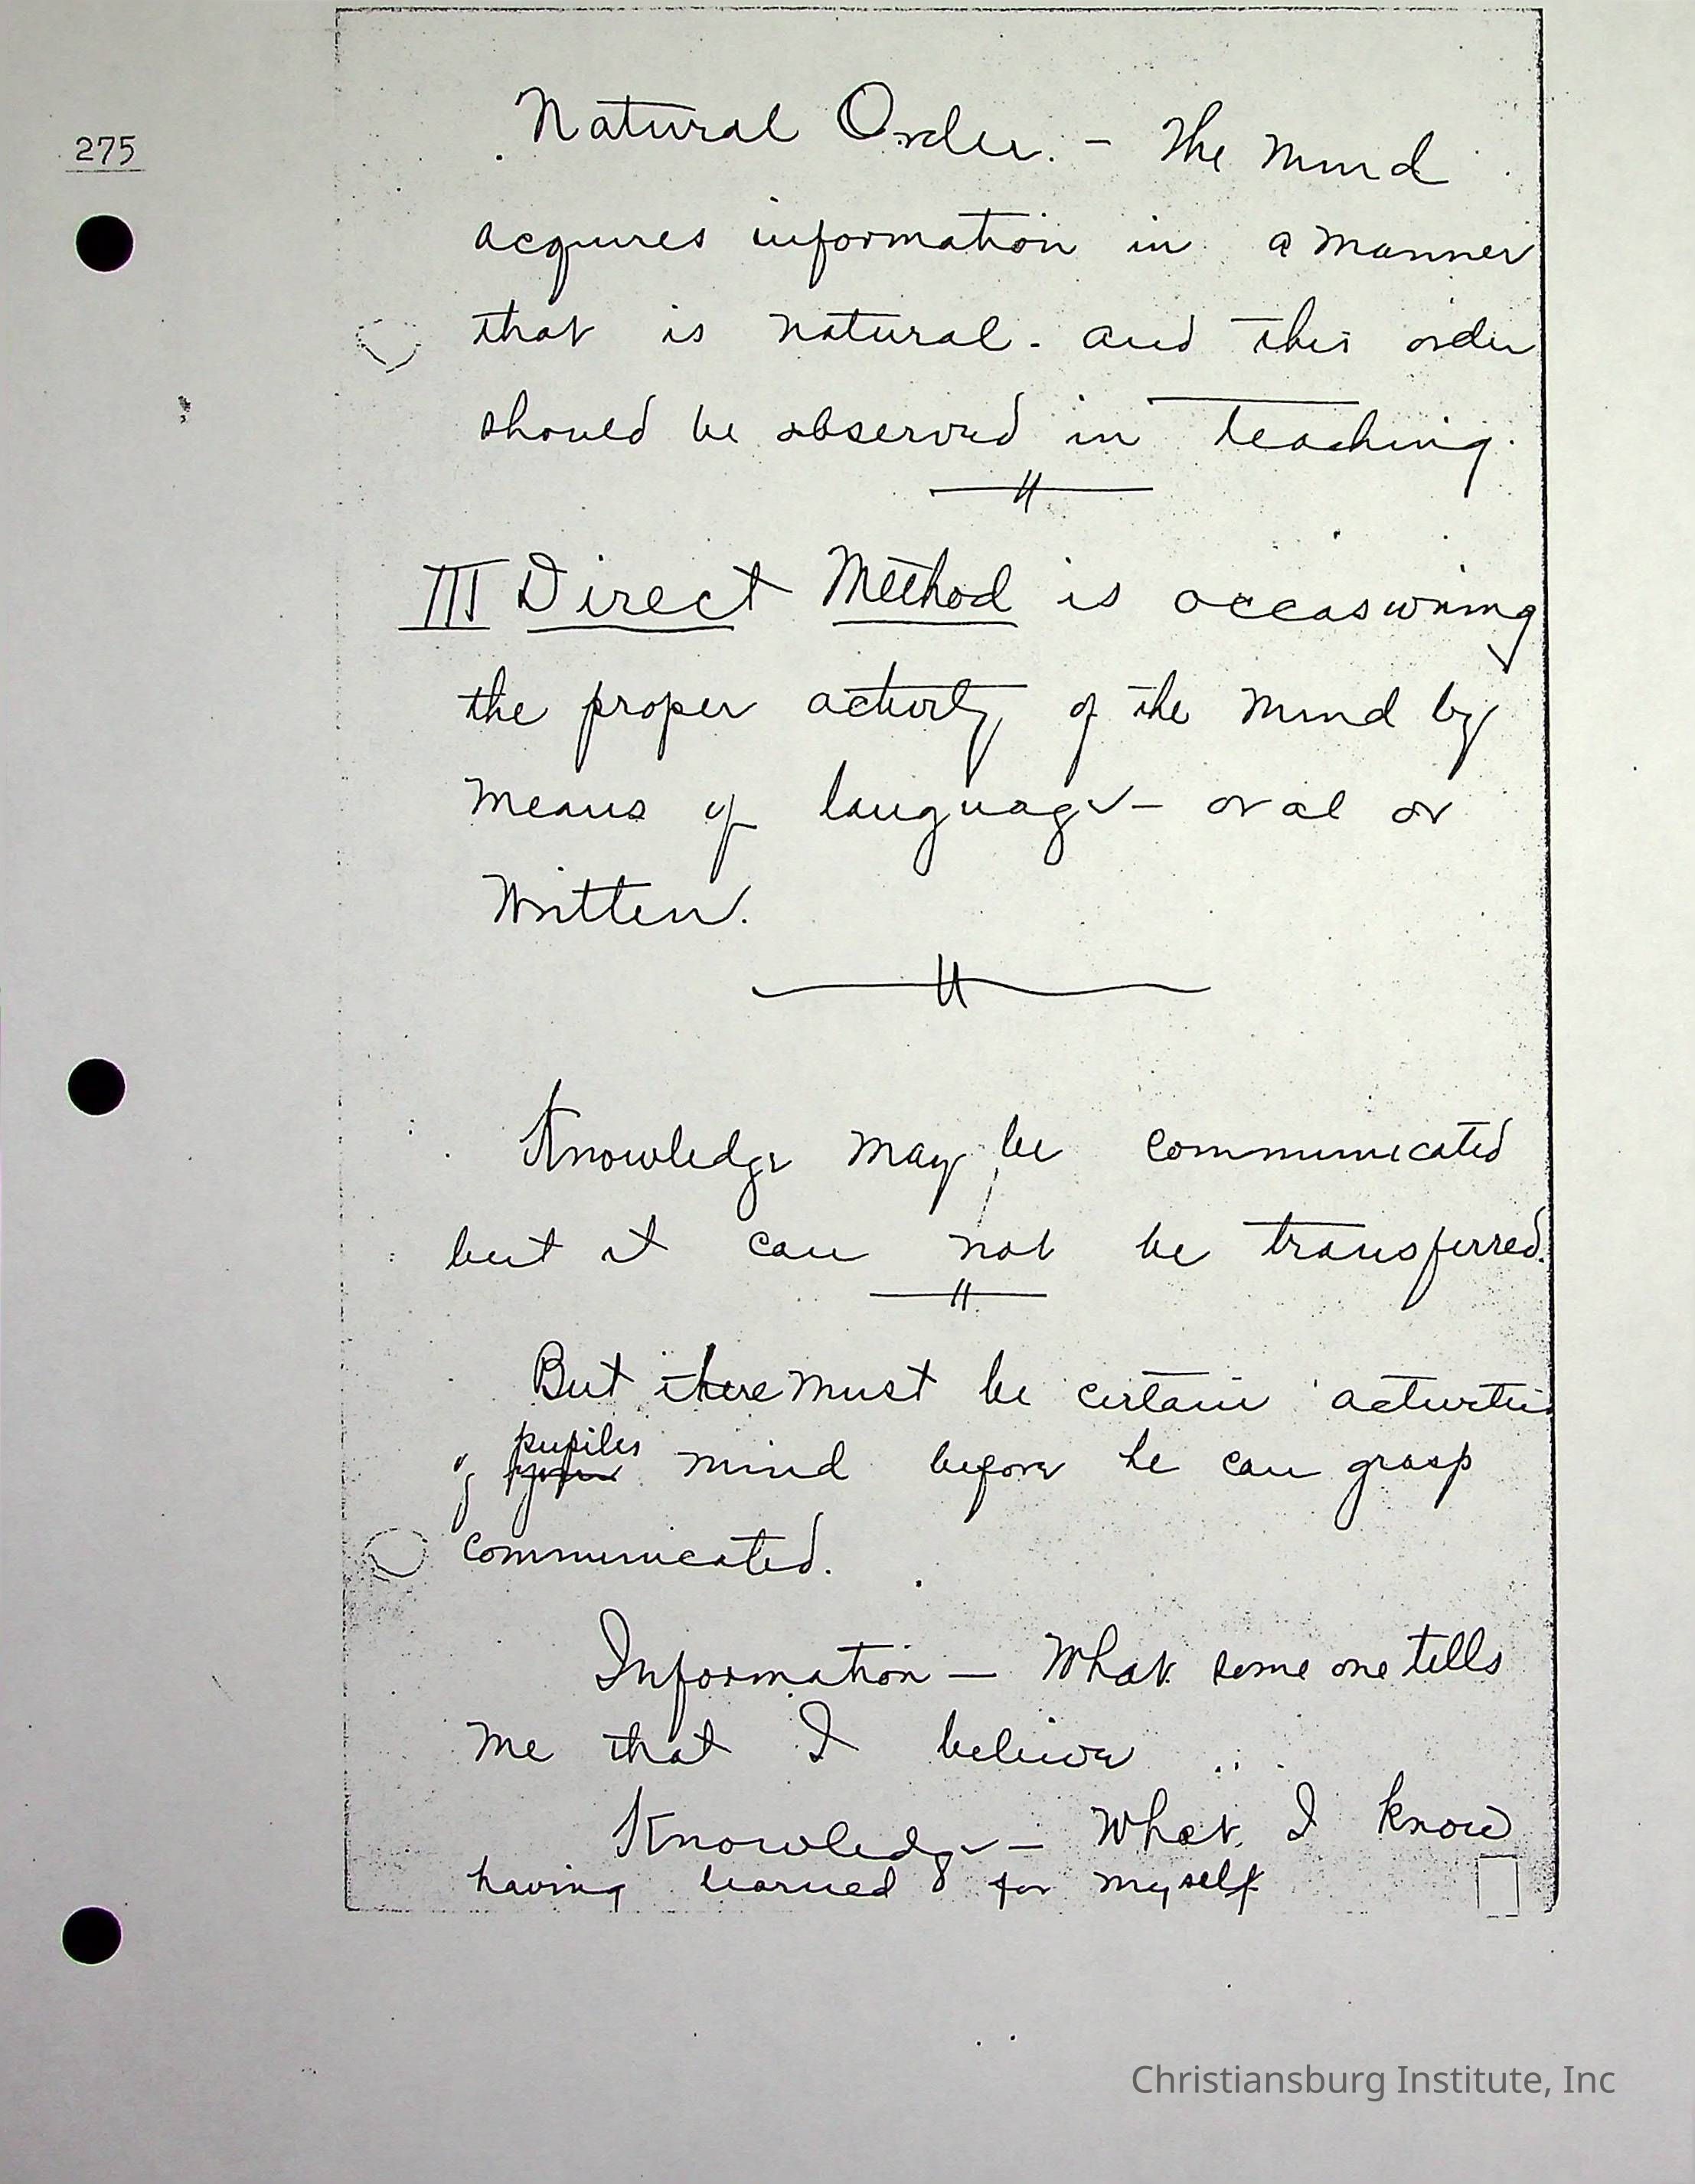 275
Natural Order. - The mind
acquires information in a manner
that is natural - and this order
should be observed in teaching.
III Direct Method is occasioning
the proper activity of the mind by
means of language - oral or
written.
Knowledge may be communicated
but it can not be transferred.
But there must be certain activities
pupiles
of mind before he can grasp
communicated.
Information - What some one tells
me that I believe
Knowledge - What I know
having learned for myself
Christiansburg Institute, Inc